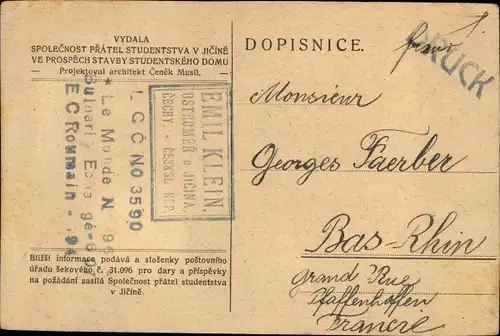 VYDALA
SPOLEČNOST PŘÁTEL STUDENTSTVA V JIČÍNĚ
VE PROSPĚCH STAVBY STUDENTSKÉHO DOMU
Projektoval architekt Čeněk Musil.
DOPISNICE.
franco
DRUCK
EMIL KLEIN,
OSTROMĚŘ u JIČÍNA,
ČECHY - ČESKSL. REP.
L G C NO 3560
* Le Monde N
E C Roumain -
Monsieur
Georges Faerber
Bas-Rhin
Grand Rue
Pfaffenhoffen
Francie
Bližší informace podává a složenky poštovního
úřadu šekového č. 31.096 pro dary a příspěvky
na požádání zasílá Společnost přátel studentstva
v Jičíně.